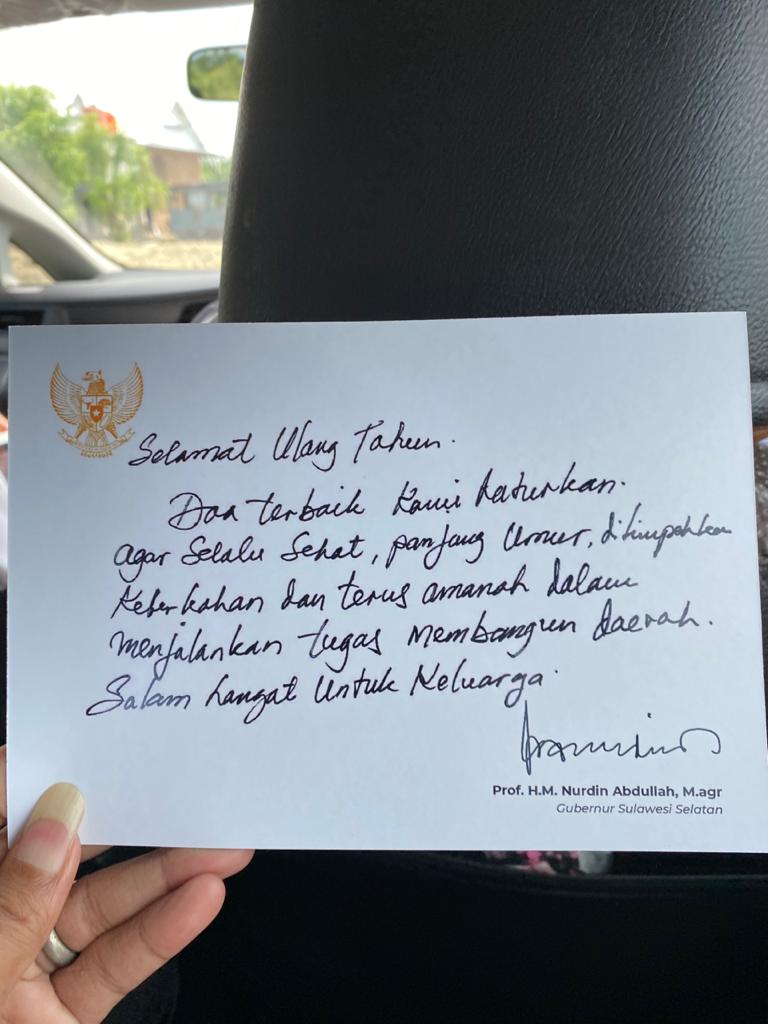 Selamat Ulang Tahun.
Doa terbaik Kami haturkan.
agar Selalu Sehat, panjang Umur, dilimpahkan
Keberkahan dan terus amanah dalam
menjalankan tugas Membangun daerah.
Salam hangat Untuk Keluarga.
Prof. H.M. Nurdin Abdullah, M.agr
Gubernur Sulawesi Selatan